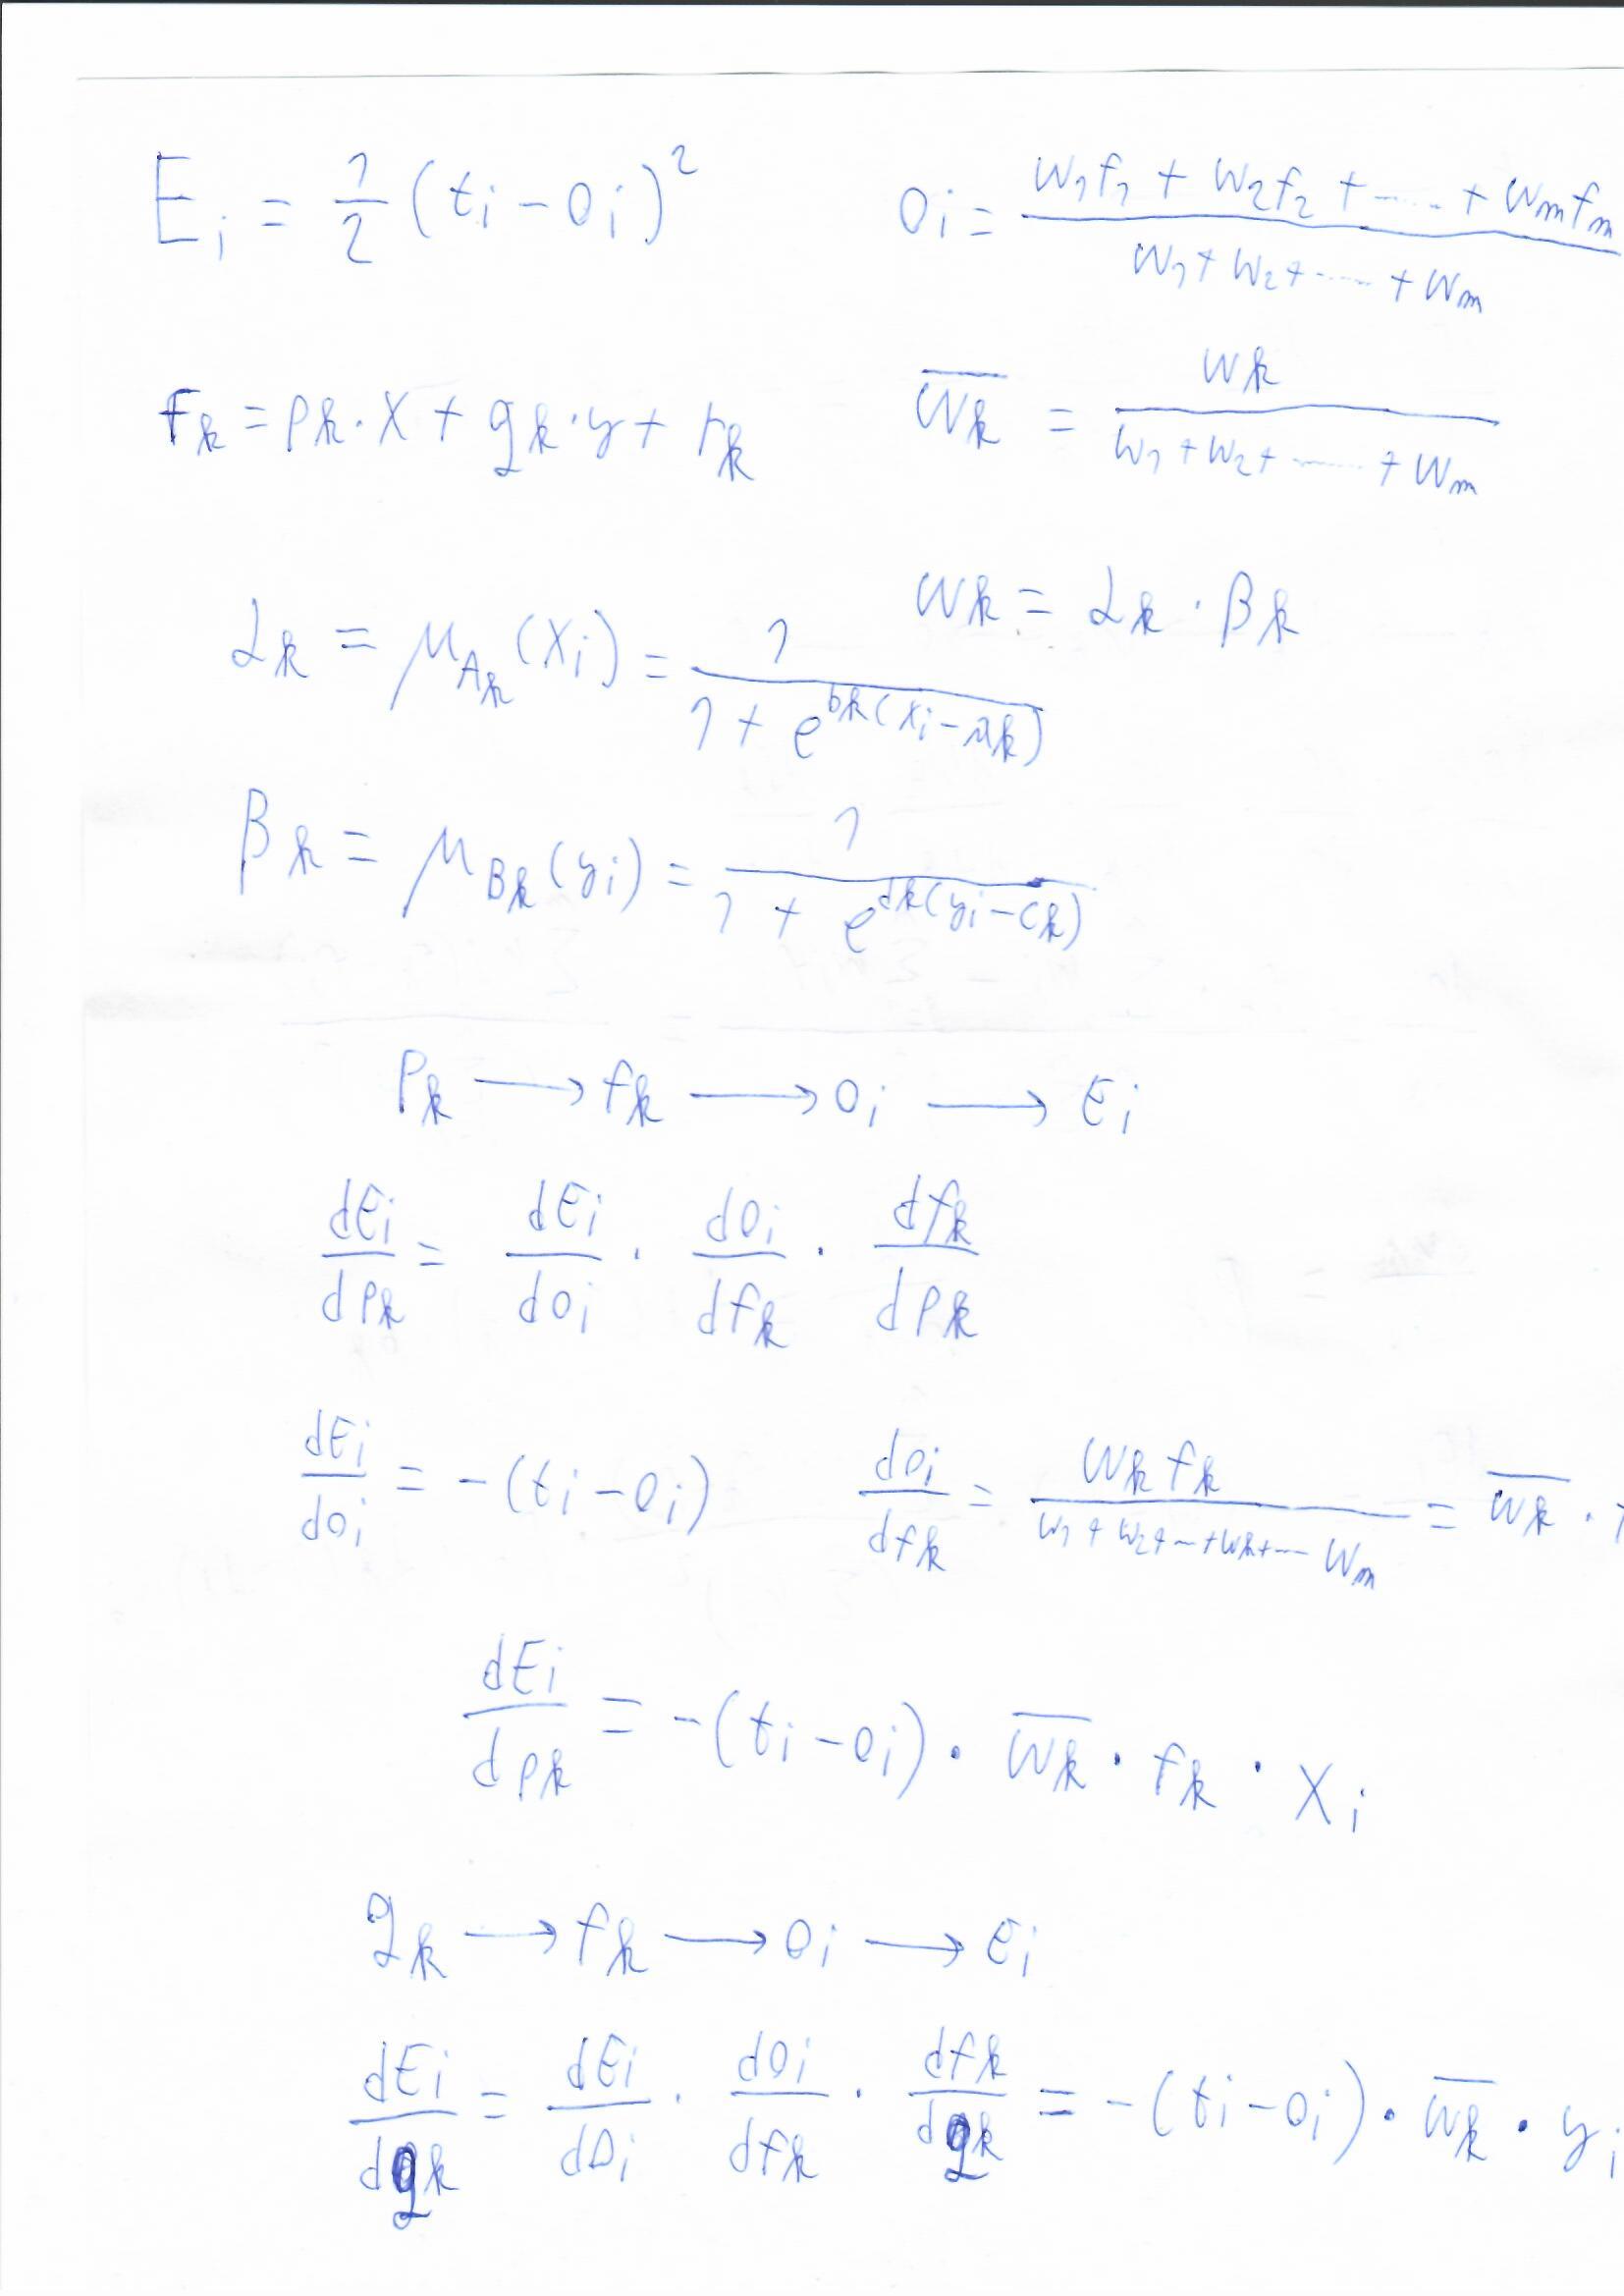 E_i = 1/2 (t_i - o_i)^2    o_i = (w_1 f_1 + w_2 f_2 + ...... + w_m f_m) / (w_1 + w_2 + ...... + w_m)
f_k = p_k · x + q_k · y + r_k    \overline{w_k} = w_k / (w_1 + w_2 + ...... + w_m)
w_k = α_k · β_k
α_k = μ_{A_k}(x_i) = 1 / (1 + e^{b_k(x_i - a_k)})
β_k = μ_{B_k}(y_i) = 1 / (1 + e^{d_k(y_i - c_k)})
p_k → f_k → o_i → E_i
dE_i/dp_k = dE_i/do_i · do_i/df_k · df_k/dp_k
dE_i/do_i = -(t_i - o_i)    do_i/df_k = w_k f_k / (w_1 + w_2 + ... + w_k + ... w_m) = \overline{w_k} ·
dE_i/dp_k = -(t_i - o_i) · \overline{w_k} · f_k · x_i
q_k → f_k → o_i → E_i
dE_i/dq_k = dE_i/do_i · do_i/df_k · df_k/dq_k = -(t_i - o_i) · \overline{w_k} · y_i